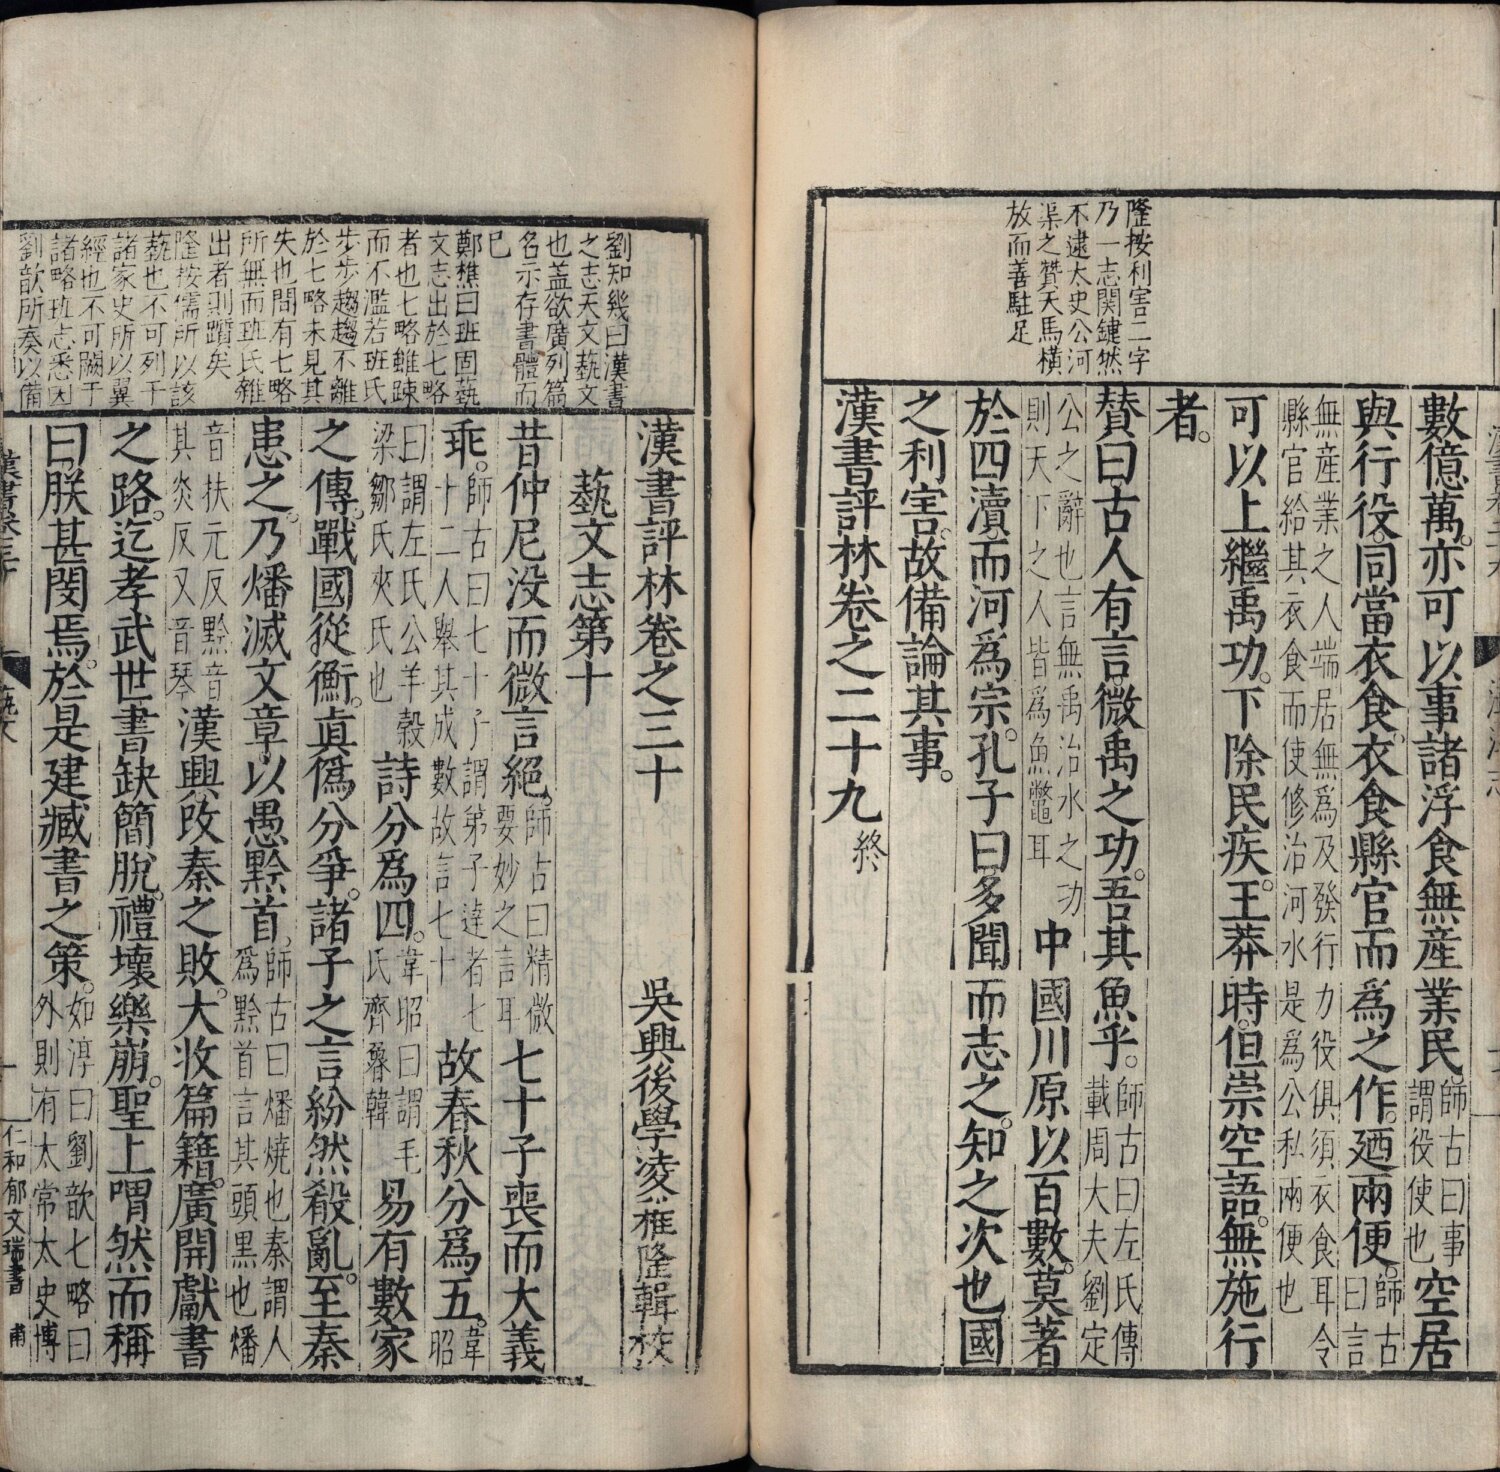 隆按利害二字
乃一志関鍵然
不逮太史公河
渠之贊天馬橫
放而善駐足
數億萬亦可以事諸浮食無産業民師古曰事謂役使也空居
與行役同當衣食衣食縣官而爲之作廼兩便師古曰言
無産業之人端居無爲及發行力役俱須衣食耳令
縣官給其衣食而使修治河水是爲公私兩便也
可以上繼禹功下除民疾王莽時但崇空語無施行
者
贊曰古人有言微禹之功吾其魚乎師古曰左氏傳載周大夫劉定
公之辭也言無禹治水之功
則天下之人皆爲魚鼈耳
中國川原以百數莫著
於四瀆而河爲宗孔子曰多聞而志之知之次也國
之利害故備論其事
漢書評林卷之二十九終
劉知幾曰漢書
之志天文藝文
也盖欲廣列篇
名示存書體而
已
鄭樵曰班固藝
文志出於七略
者也七略雖疎
而不濫若班氏
步步趨趨不離
於七略未見其
失也間有七略
所無而班氏雜
出者則躓矣
隆按儒所以該
藝也不可列于
諸家史所以翼
經也不可闕于
諸略班志悉因
劉歆所奏以備
漢書評林卷之三十
吳興後學凌稚隆輯校
藝文志第十
昔仲尼没而微言絕師古曰精微要妙之言耳七十子喪而大義
乖師古曰七十子謂弟子達者七十二人舉其成數故言七十故春秋分爲五韋昭
曰謂左氏公羊穀梁鄒氏夾氏也詩分爲四韋昭曰謂毛氏齊魯韓易有數家
之傳戰國從衡眞僞分爭諸子之言紛然殽亂至秦
患之乃燔滅文章以愚黔首師古曰燔燒也秦謂人爲黔首言其頭黑也燔
音扶元反黔音其炎反又音琴漢興改秦之敗大收篇籍廣開獻書
之路迄孝武世書缺簡脫禮壞樂崩聖上喟然而稱
曰朕甚閔焉於是建臧書之策如淳曰劉歆七略曰外則有太常太史博
藝文
仁和郁文瑞書